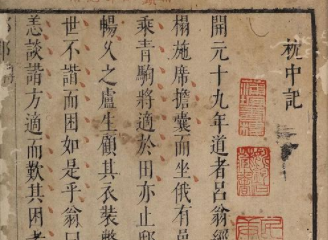 枕中記
開元十九年道者呂翁經
榻施席擔囊而坐俄有邑
乘青駒將適於田亦止邸
暢久之盧生顧其衣裝弊
世不諧而困如是乎翁曰
恙談諧方適而歎其困者